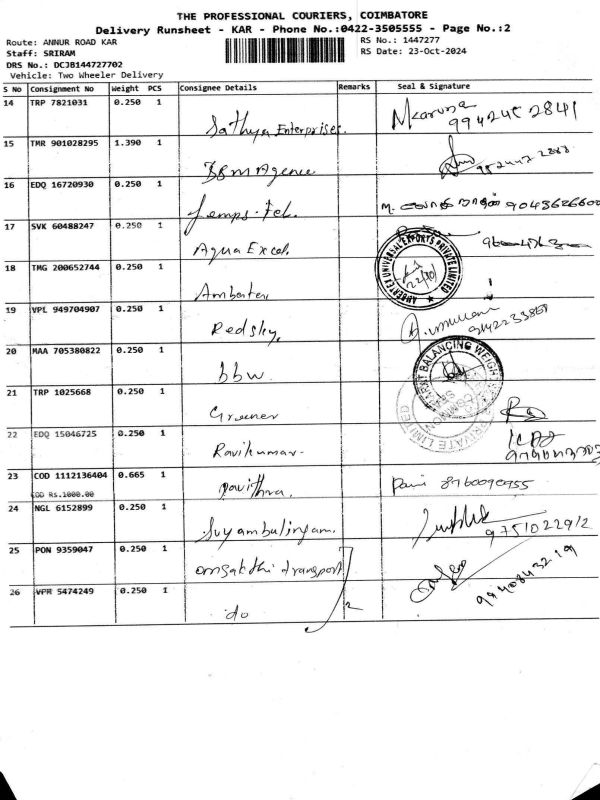 THE PROFESSIONAL COURIERS, COIMBATORE
Delivery Runsheet - KAR - Phone No.:0422-3505555 - Page No.:2
Route: ANNUR ROAD KAR
RS No.: 1447277
Staff: SRIRAM
RS Date: 23-Oct-2024
DRS No.: DCJB144727702
Vehicle: Two Wheeler Delivery
S No Consignment No Weight PCS Consignee Details Remarks Seal & Signature
14 TRP 7821031 0.250 1 Sathya Enterprises. 2841
15 TMR 901028295 1.390 1 BBM Agencie
16 EDQ 16720930 0.250 1
17 SVK 60488247 0.250 1 Aqua Excel.
18 TMG 200652744 0.250 1 Ambertex
AMBERTEX UNIVERSAL EXPORTS PRIVATE LIMITED
19 VPL 949704907 0.250 1 Redsky.
20 MAA 705380822 0.250 1 bbw.
BALANCING WEIGHT
PRIVATE LIMITED
21 TRP 1025668 0.250 1 Greener
22 EDQ 15046725 0.250 1 Ravikumar.
23 COD 1112136404 0.665 1 Pavithra.
COD Rs.1000.00
24 NGL 6152899 0.250 1 Suyambulingam. 9751022912
25 PON 9359047 0.250 1 Omsakthi transport
26 VPM 5474249 0.250 1 do 2 9940843219